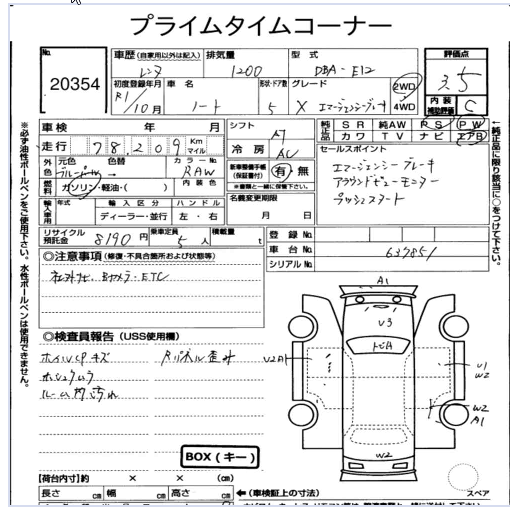 プライムタイムコーナー
No.
20354
車歴 (自家用以外は記入)
レンタ
排気量
1200
型式
DBA-E12
評価点
3.5
初度登録年月
R1/10月
車名
ノート
形状・ドア数
5
グレード
X エマージェンシーブレーキ
2WD
4WD
内装
補助評価
C
車検 年 月
走行 78,209 Km マイル
シフト
AT
純正品
SR 純AW PS PW
カワ TV ナビ エアB
外色
元色
色替
カラーNo.
RAW
冷房
AC
セールスポイント
エマージェンシーブレーキ
アラウンドビューモニター
プッシュスタート
燃料
ガソリン・軽油・( )
内装色
新車整備手帳
(保証書付)
有・無
※書類と一緒に保管下さい。
輸入車用
年式
輸入区分
ディーラー・並行
ハンドル
左・右
名義変更期限
月 日
リサイクル預託金
8190円
乗車定員
5人
積載量
t
登録No.
車台No.
637851
シリアルNo.
◎注意事項 (修復・不具合箇所および状態等)
社外ナビ、Bカメラ・ETC
◎検査員報告 (USS使用欄)
ホイルCPキズ
Rパネル歪み
ホシュウムラ
ルーム内汚れ
BOX(キー)
A1
U3
トビA
U2A1
U1
W2
W2
A1
W2
スペア
【荷台内寸】約 × × (cm)
長さ cm 幅 cm 高さ cm
←(車検証上の寸法)
※必ず油性ボールペンをご使用下さい。水性ボールペンは使用できません。
←純正品に限り該当に○をつけて下さい。